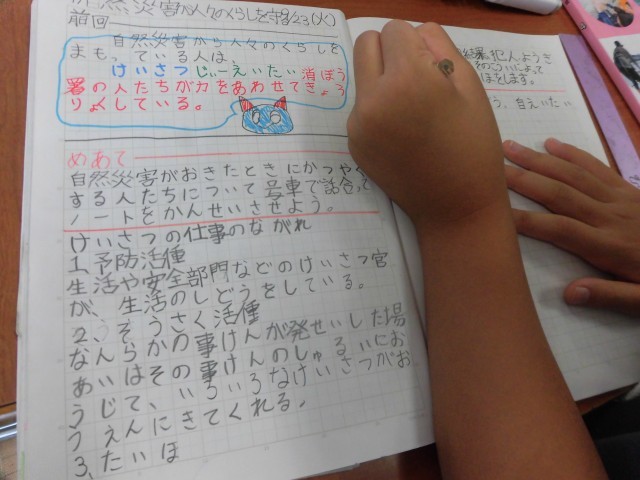 自然災害から人々のくらしを守る 1/23(火)
前回
自然災害から人々のくらしを
まも、ている人は、
けいさつ じぃーえいたい 消ぼう
署の人たちが力をあわせてきょう
りょくしている。
めあて
自然災害がおきたときにかつやく
する人たちについて号車で話合って
ノートをかんせいさせよう。
けいさつの仕事のながれ
1、予防活種
生活や安全部門などのけいさつ官
が、生活のしどうをしている。
2、そうさく活種
なんらかの事けんが発せいした場
あいはその事けんのしゅるいにお
うじて、いろいろなけいさつがお
うえんにきてくれる。
3、たいほ
犯人ようき
ほをします。